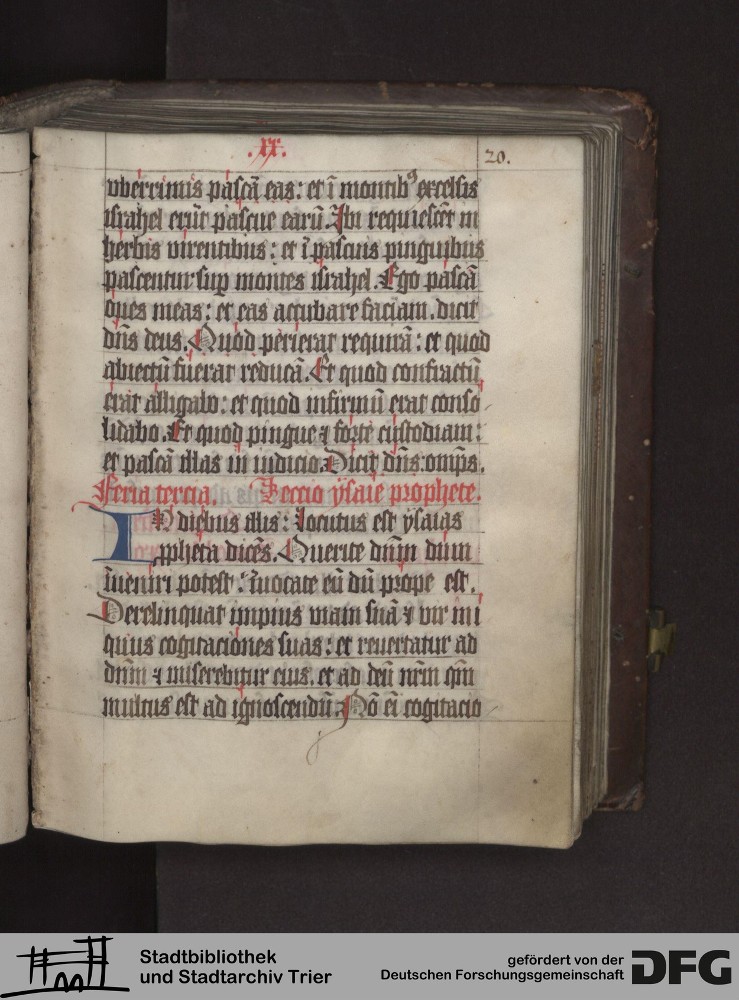 .xx.
20.
vberrimis pascā eas: et ī montibꝰ excelsis
israhel erūt pascue earū. Ibi requiescēt in
herbis virentibus: et ī pascuis pinguibus
pascentur suꝑ montes israhel. Ego pascā
oues meas: et eas accubare faciam. dicit
dn̄s deus. Quod perierat requirā: et quod
abiectū fuerat reducā. Et quod confractū
erat alligabo: et quod infirmū erat conso
lidabo. Et quod pingue ⁊ forte custodiam:
et pascā illas in iudicio. Dicit dn̄s om̄ps.
Feria tercia. Leccio ysaie prophete.
IN diebus illis: Locutus est ysaias
ꝓpheta dicēs. Querite dn̄m dum
īueniri potest: īuocate eū dū prope est.
Derelinquat impius viam suā ⁊ vir ini
quus cogitaciones suas: et reuertatur ad
dn̄m ⁊ miserebitur eius. et ad deū nr̄m qm̄
multus est ad ignoscendū. Nō ei cogitacio
Stadtbibliothek
und Stadtarchiv Trier
gefördert von der
Deutschen Forschungsgemeinschaft
DFG